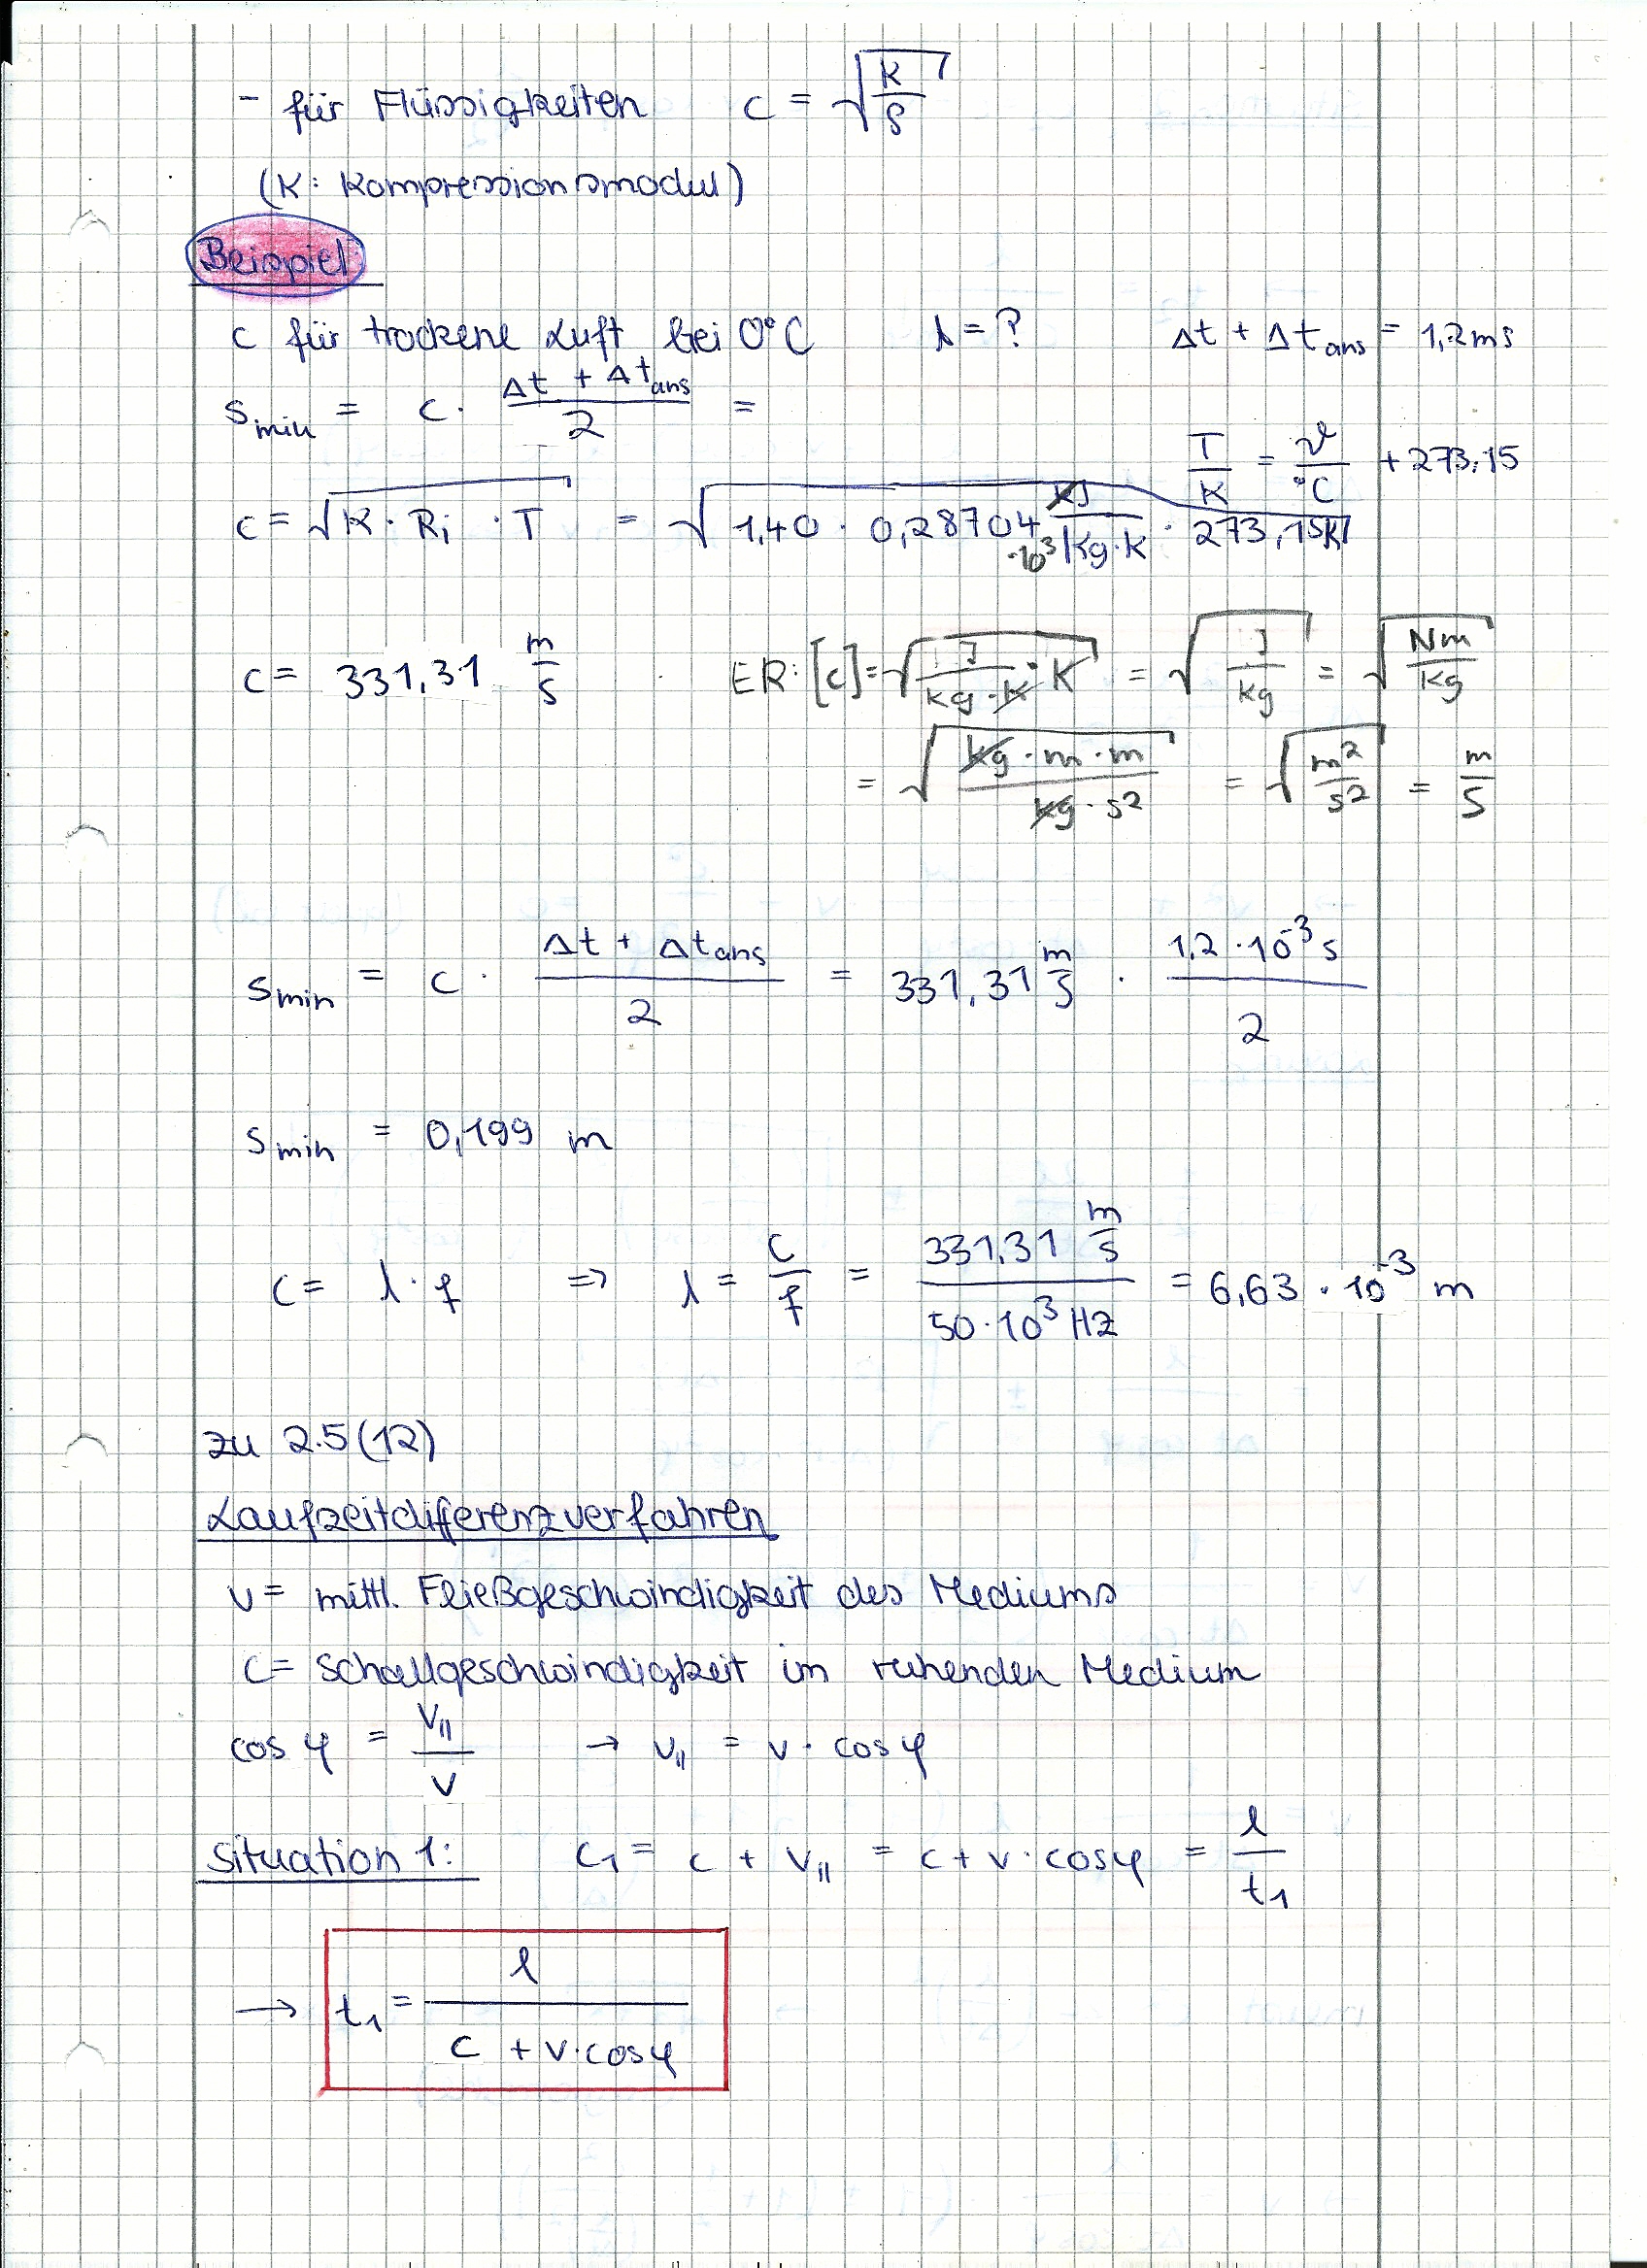 - für Flüssigkeiten c = √(K/ρ)
(K: Kompressionsmodul)
Beispiel
c für trockene Luft bei 0°C λ = ? Δt + Δt_ans = 1,2ms
s_min = c · (Δt + Δt_ans)/2 =
T/K = ϑ/°C + 273,15
c = √(κ · R_i · T) = √(1,40 · 0,28704 ·10³ kJ/(kg·K) · 273,15K)
c = 331,31 m/s ER: [c] = √(J/(kg·K) · K) = √(J/kg) = √(Nm/kg)
= √((kg·m·m)/(kg·s²)) = √(m²/s²) = m/s
s_min = c · (Δt + Δt_ans)/2 = 331,31 m/s · (1,2 · 10⁻³ s)/2
s_min = 0,199 m
c = λ · f ⇒ λ = c/f = (331,31 m/s)/(50·10³ Hz) = 6,63 · 10⁻³ m
zu 2.5(12)
Laufzeitdifferenzverfahren
v = mittl. Fließgeschwindigkeit des Mediums
c = Schallgeschwindigkeit im ruhenden Medium
cos φ = v_∥/v → v_∥ = v · cos φ
Situation 1: c₁ = c + v_∥ = c + v · cosφ = l/t₁
→ t₁ = l/(c + v·cosφ)